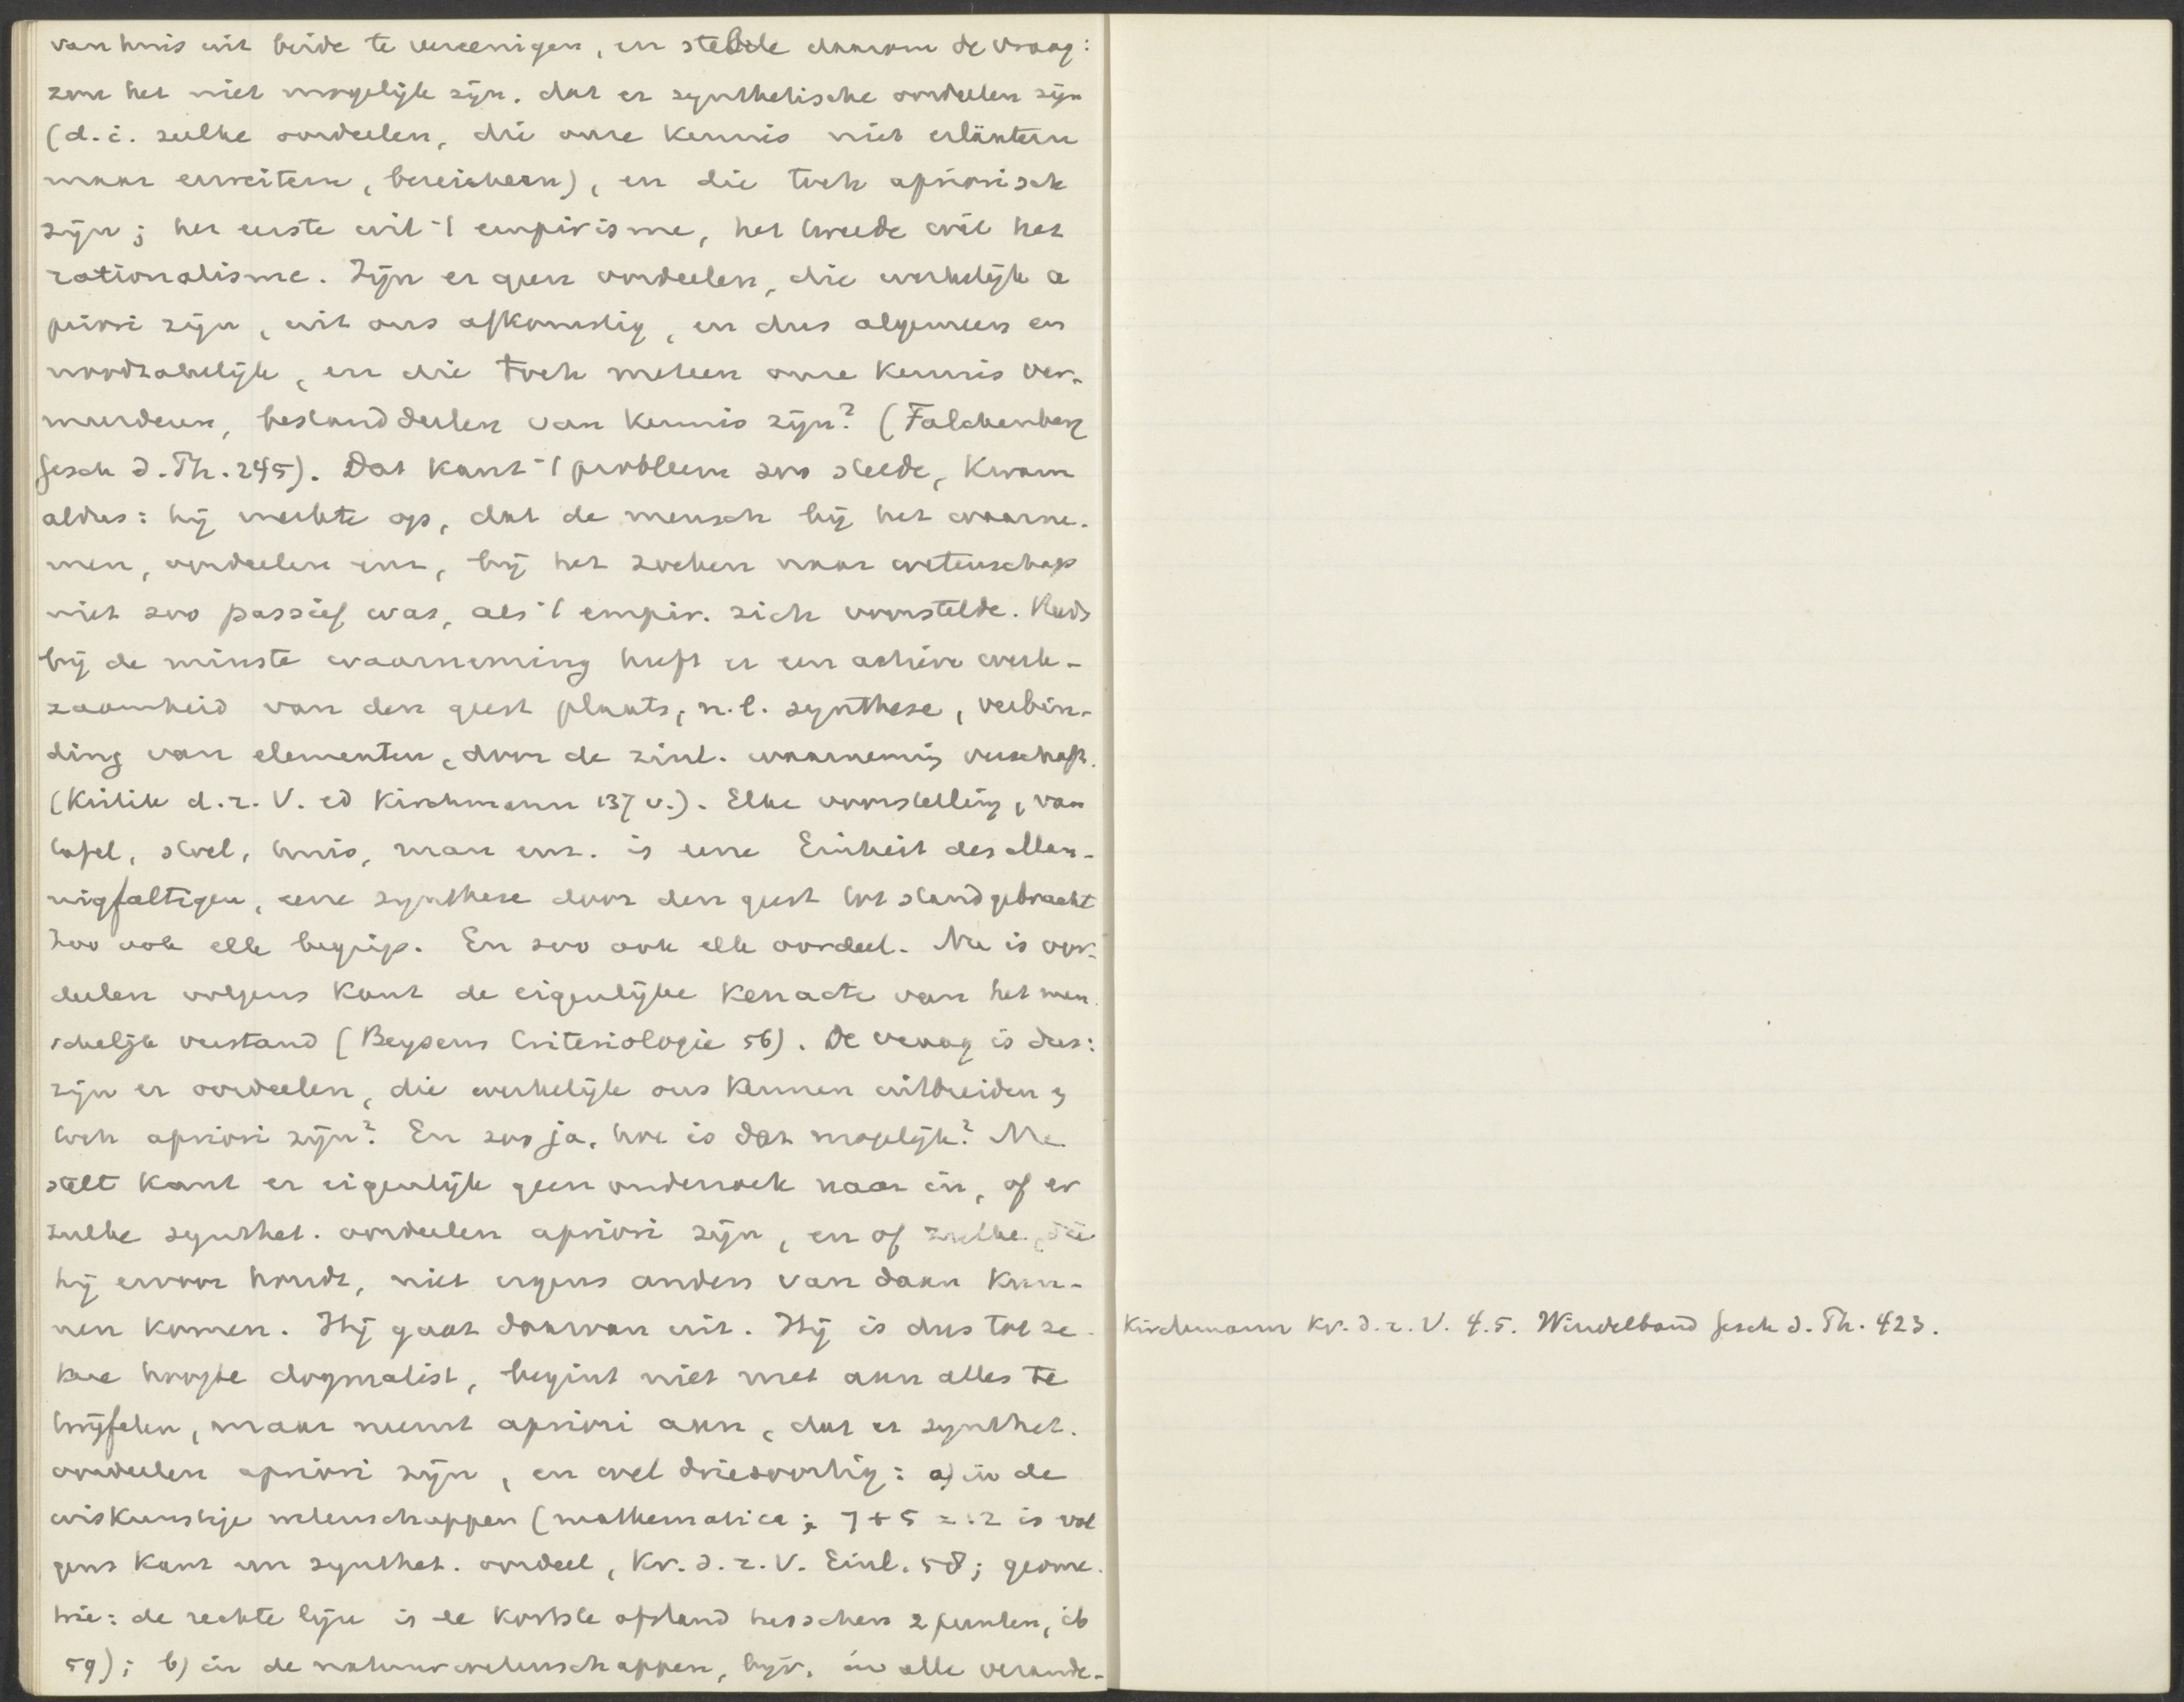 van huis uit beide te vereenigen, en stelde daarom de vraag:
zou het niet mogelijk zijn, dat er synthetische oordeelen zijn
(d.i. zulke oordeelen, die onze kennis niet erläutern
maar erweitern, bereichern), en die toch apriorisch
zijn; het eerste wil 't empirisme, het tweede wil het
rationalisme. Zijn er geen oordeelen, die werkelijk a
priori zijn, uit ons afkomstig, en dus algemeen en
noodzakelijk, en die toch meteen onze kennis ver-
meerderen, bestanddeelen van kennis zijn? (Falckenberg
Gesch d. Ph. 245). Dat Kant 't probleem zoo stelde, kwam
aldus: hij merkte op, dat de mensch bij het waarne-
men, oordeelen enz, bij het zoeken naar wetenschap
niet zoo passief was, als 't empir. zich voorstelde. Reeds
bij de minste waarneming heeft er een actieve werk-
zaamheid van den geest plaats, n.l. synthese, verbin-
ding van elementen, door de zinl. waarneming verschaft.
(Kritik d. r. V. ed Kirchmann 137 v.). Elke voorstelling, van
tafel, stoel, huis, man enz. is eene Einheit des Man-
nigfaltigen, eene synthese door den geest tot stand gebracht
Zoo ook elk begrip. En zoo ook elk oordeel. Nu is oor-
deelen volgens Kant de eigenlijke kenacte van het men
schelijk verstand (Beysens Criteriologie 56). De vraag is dus:
zijn er oordeelen, die werkelijk ons kennen uitbreiden &
toch apriori zijn? En zoo ja, hoe is dat mogelijk? Nu
stelt Kant er eigenlijk geen onderzoek naar in, of er
zulke synthet. oordeelen apriori zijn, en of zulke, die
hij ervoor houdt, niet ergens anders van daan kun-
nen komen. Hij gaat daarvan uit. Hij is dus tot ze-
kere hoogte dogmatist, begint niet met aan alles te
twijfelen, maar neemt apriori aan, dat er synthet.
oordeelen apriori zijn, en wel driesoortig: a) in de
wiskunstige wetenschappen (mathematica; 7 + 5 = 12 is vol
gens Kant een synthet. oordeel, Kr. d. r. V. Einl. 58; geome-
trie: de rechte lijn is de kortste afstand tusschen 2 punten, ib
59); b) in de natuurwetenschappen, bijv. in alle verande-
Kirchmann Kr. d. r. V. 4.5. Windelband Gesch d. Ph. 423.